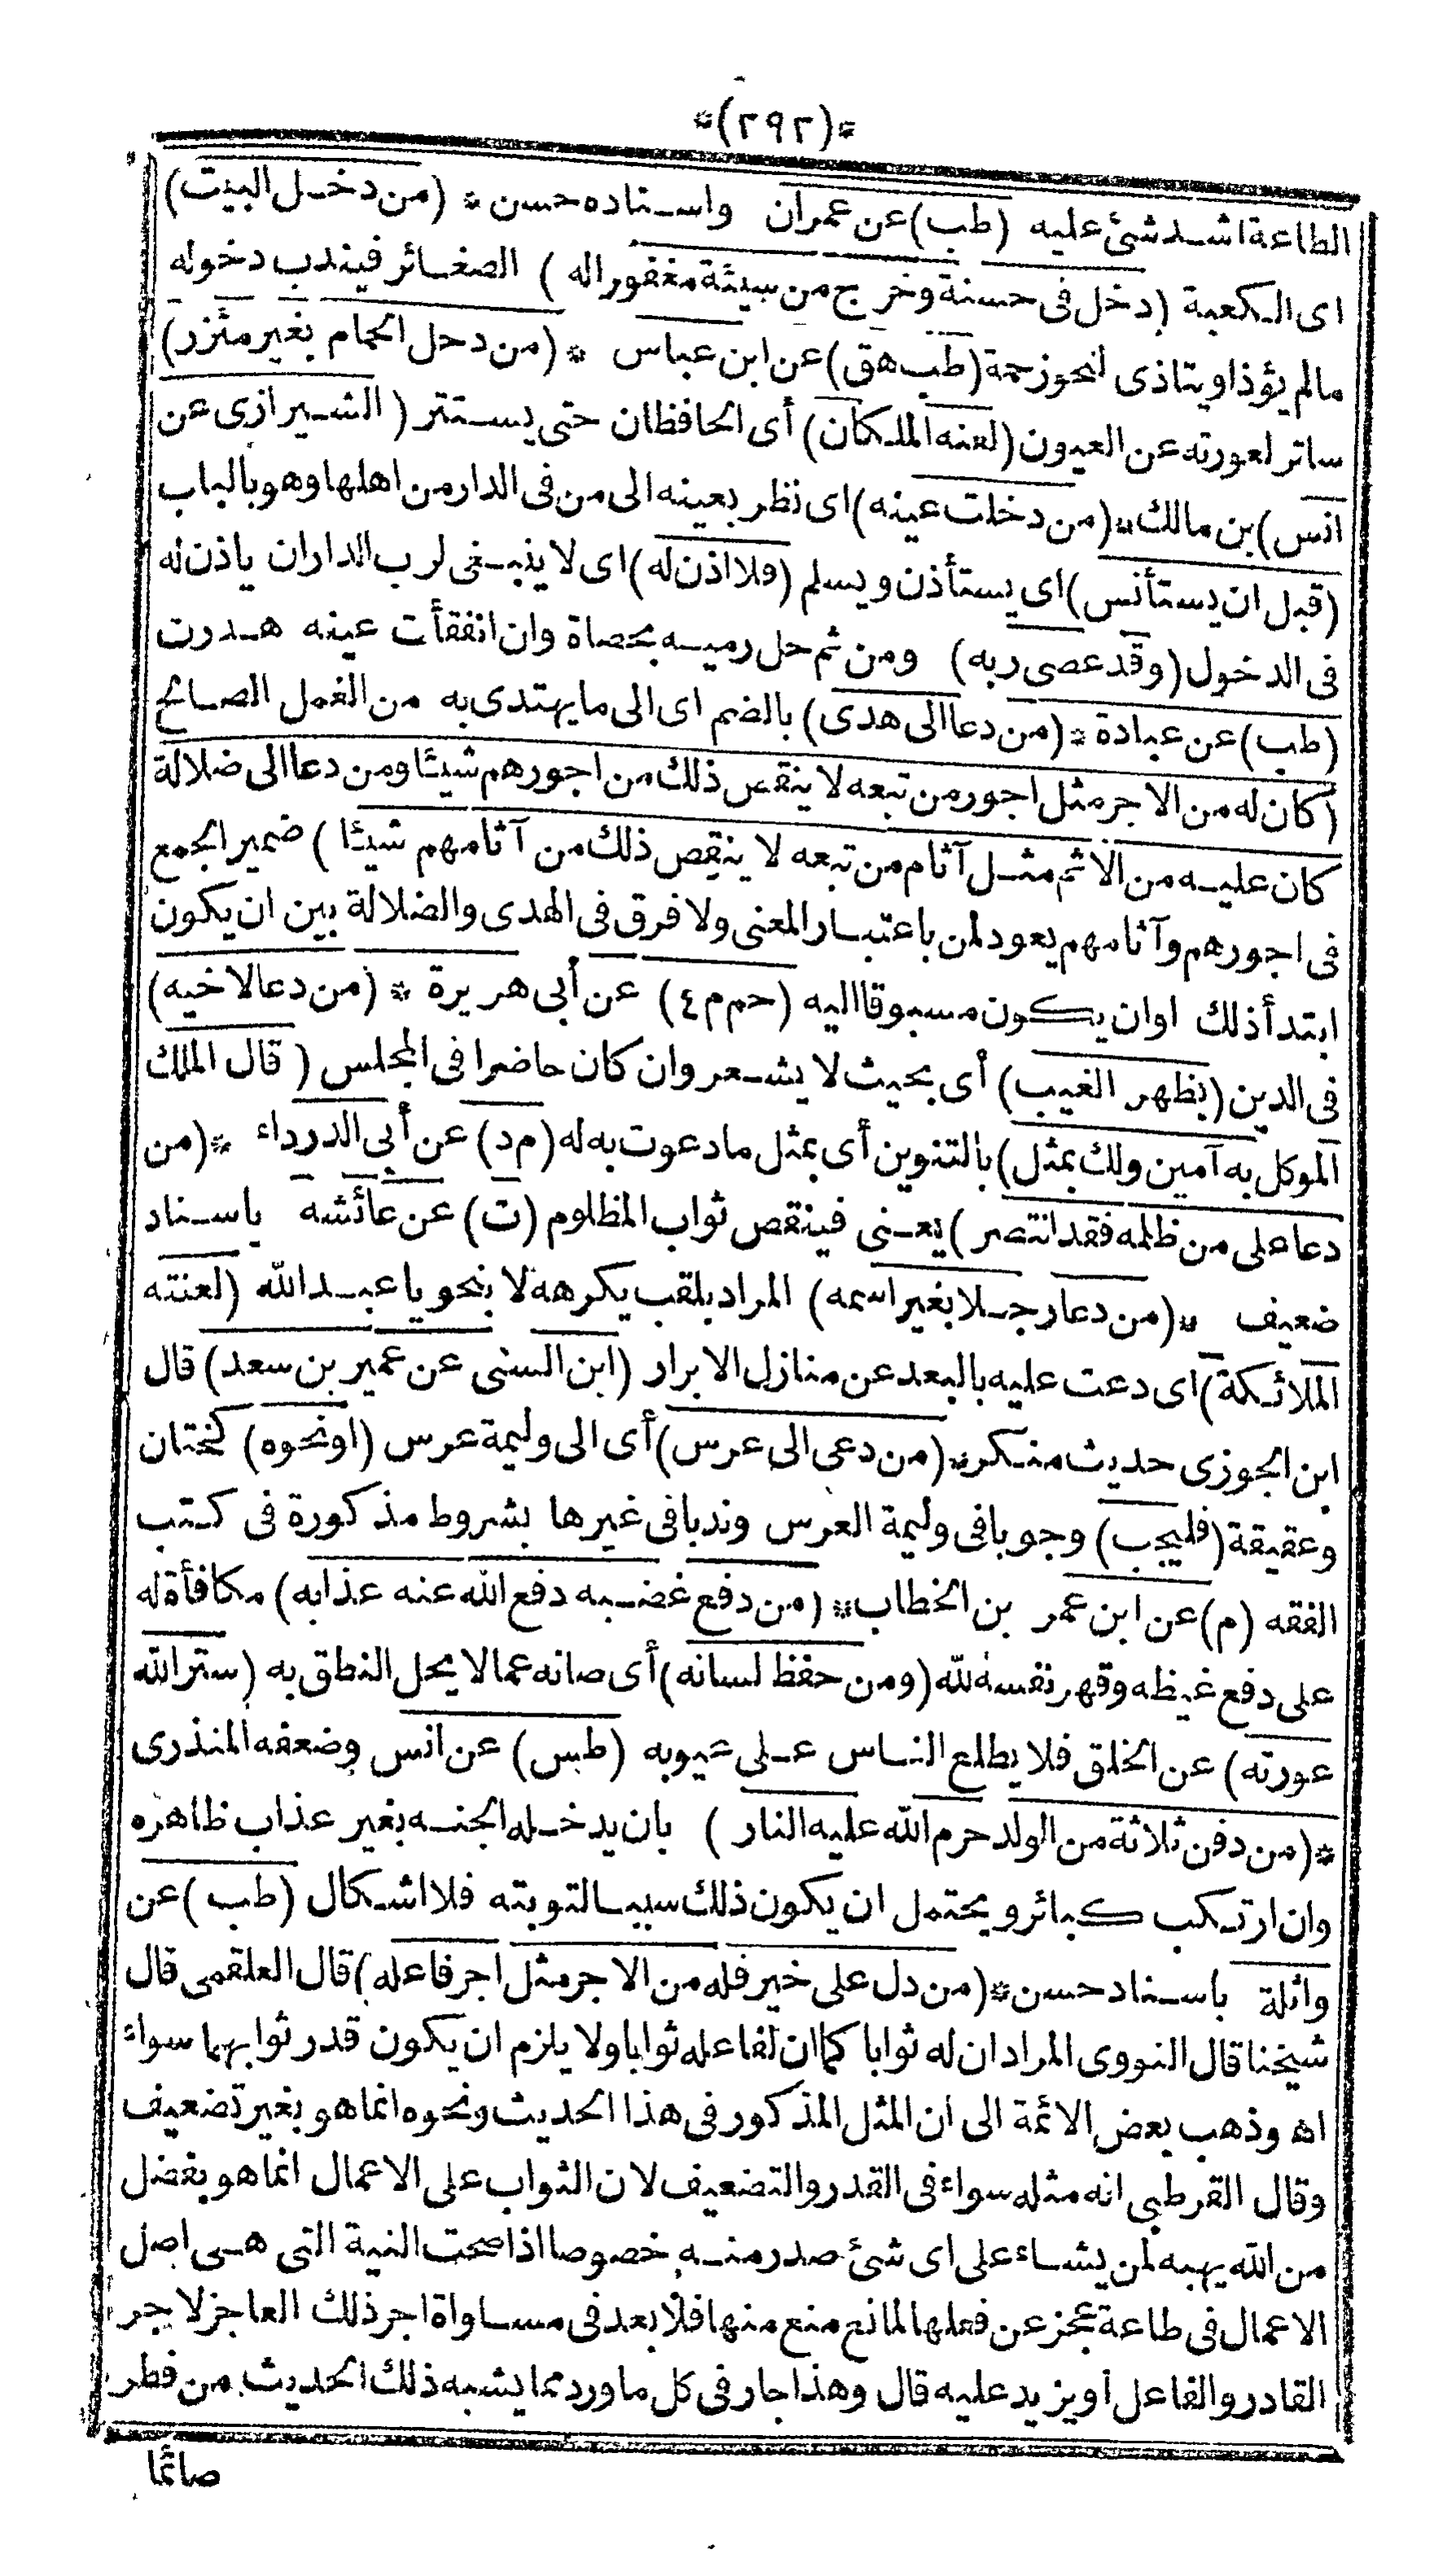 *(٢٩٢)*
الطاعة اشد شئ عليه (طب) عن عمران واسناده حسن * (من دخل البيت)
اى الكعبة (دخل فى حسنة وخرج من سيئة مغفورا له) الصغائر فيندب دخوله
مالم يؤذ او يتاذى لنحو زحمة (طب هق) عن ابن عباس * (من دحل الحمام بغير مئزر)
ساتر لعورته عن العيون (لعنه الملكان) أى الحافظان حتى يستتر (الشيرازى عن
انس) بن مالك * (من دخلت عينه) اى نظر بعينه الى من فى الدار من اهلها وهو بالباب
(قبل ان يستأنس) اى يستأذن ويسلم (فلا اذن له) اى لا ينبغى لرب الدار ان ياذن له
فى الدخول (وقد عصى ربه) ومن ثم حل رميه بحصاة وان انفقأت عينه هدرت
(طب) عن عبادة * (من دعا الى هدى) بالضم اى الى ما يهتدى به من العمل الصالح
(كان له من الاجر مثل اجور من تبعه لا ينقص ذلك من اجورهم شيئا ومن دعا الى ضلالة
كان عليه من الاثم مثل آثام من تبعه لا ينقص ذلك من آثامهم شيئا) ضمير الجمع
فى اجورهم وآثامهم يعود لمن باعتبار المعنى ولا فرق فى الهدى والضلالة بين ان يكون
ابتدأ ذلك اوان يكون مسبوقا اليه (حم م ٤) عن أبى هريرة * (من دعا لاخيه)
فى الدين (بظهر الغيب) أى بحيث لا يشعر وان كان حاضرا فى المجلس (قال الملك
الموكل به آمين ولك بمثل) بالتنوين أى بمثل ما دعوت به له (م د) عن أبى الدرداء * (من
دعا على من ظلمه فقد انتصر) يعنى فينقص ثواب المظلوم (ت) عن عائشه باسناد
ضعيف * (من دعا رجلا بغير اسمه) المراد بلقب يكرهه لا بنحو يا عبد الله (لعنته
الملائكة) اى دعت عليه بالبعد عن منازل الابرار (ابن السنى عن عمير بن سعد) قال
ابن الجوزى حديث منكر * (من دعى الى عرس) أى الى وليمة عرس (او نحوه) كختان
وعقيقة (فليجب) وجوبا فى وليمة العرس وندبا فى غيرها بشروط مذكورة فى كتب
الفقه (م) عن ابن عمر بن الخطاب * (من دفع غضبه دفع الله عنه عذابه) مكافأة له
على دفع غيظه وقهر نفسه لله (ومن حفظ لسانه) أى صانه عما لا يحل النطق به (ستر الله
عورته) عن الخلق فلا يطلع الناس على عيوبه (طس) عن انس وضعفه المنذرى
* (من دفن ثلاثة من الولد حرم الله عليه النار) بان يدخله الجنه بغير عذاب ظاهره
وان ارتكب كبائر ويحتمل ان يكون ذلك سببا لتوبته فلا اشكال (طب) عن
واثلة باسناد حسن * (من دل على خير فله من الاجر مثل اجر فاعله) قال العلقمى قال
شيخنا قال النووى المراد ان له ثوابا كما ان لفاعله ثوابا ولا يلزم ان يكون قدر ثوابهما سواء
اه وذهب بعض الائمة الى ان المثل المذكور فى هذا الحديث ونحوه انما هو بغير تضعيف
وقال القرطبى انه مثله سواء فى القدر والتضعيف لان الثواب على الاعمال انما هو بفضل
من الله يهبه لمن يشاء على اى شئ صدر منه خصوصا اذا صحت النية التى هى اصل
الاعمال فى طاعة عجز عن فعلها لمانع منع منها فلا بعد فى مساواة اجر ذلك العاجز لاجر
القادر والفاعل او يزيد عليه قال وهذا جار فى كل ما ورد مما يشبه ذلك الحديث من فطر
صائما